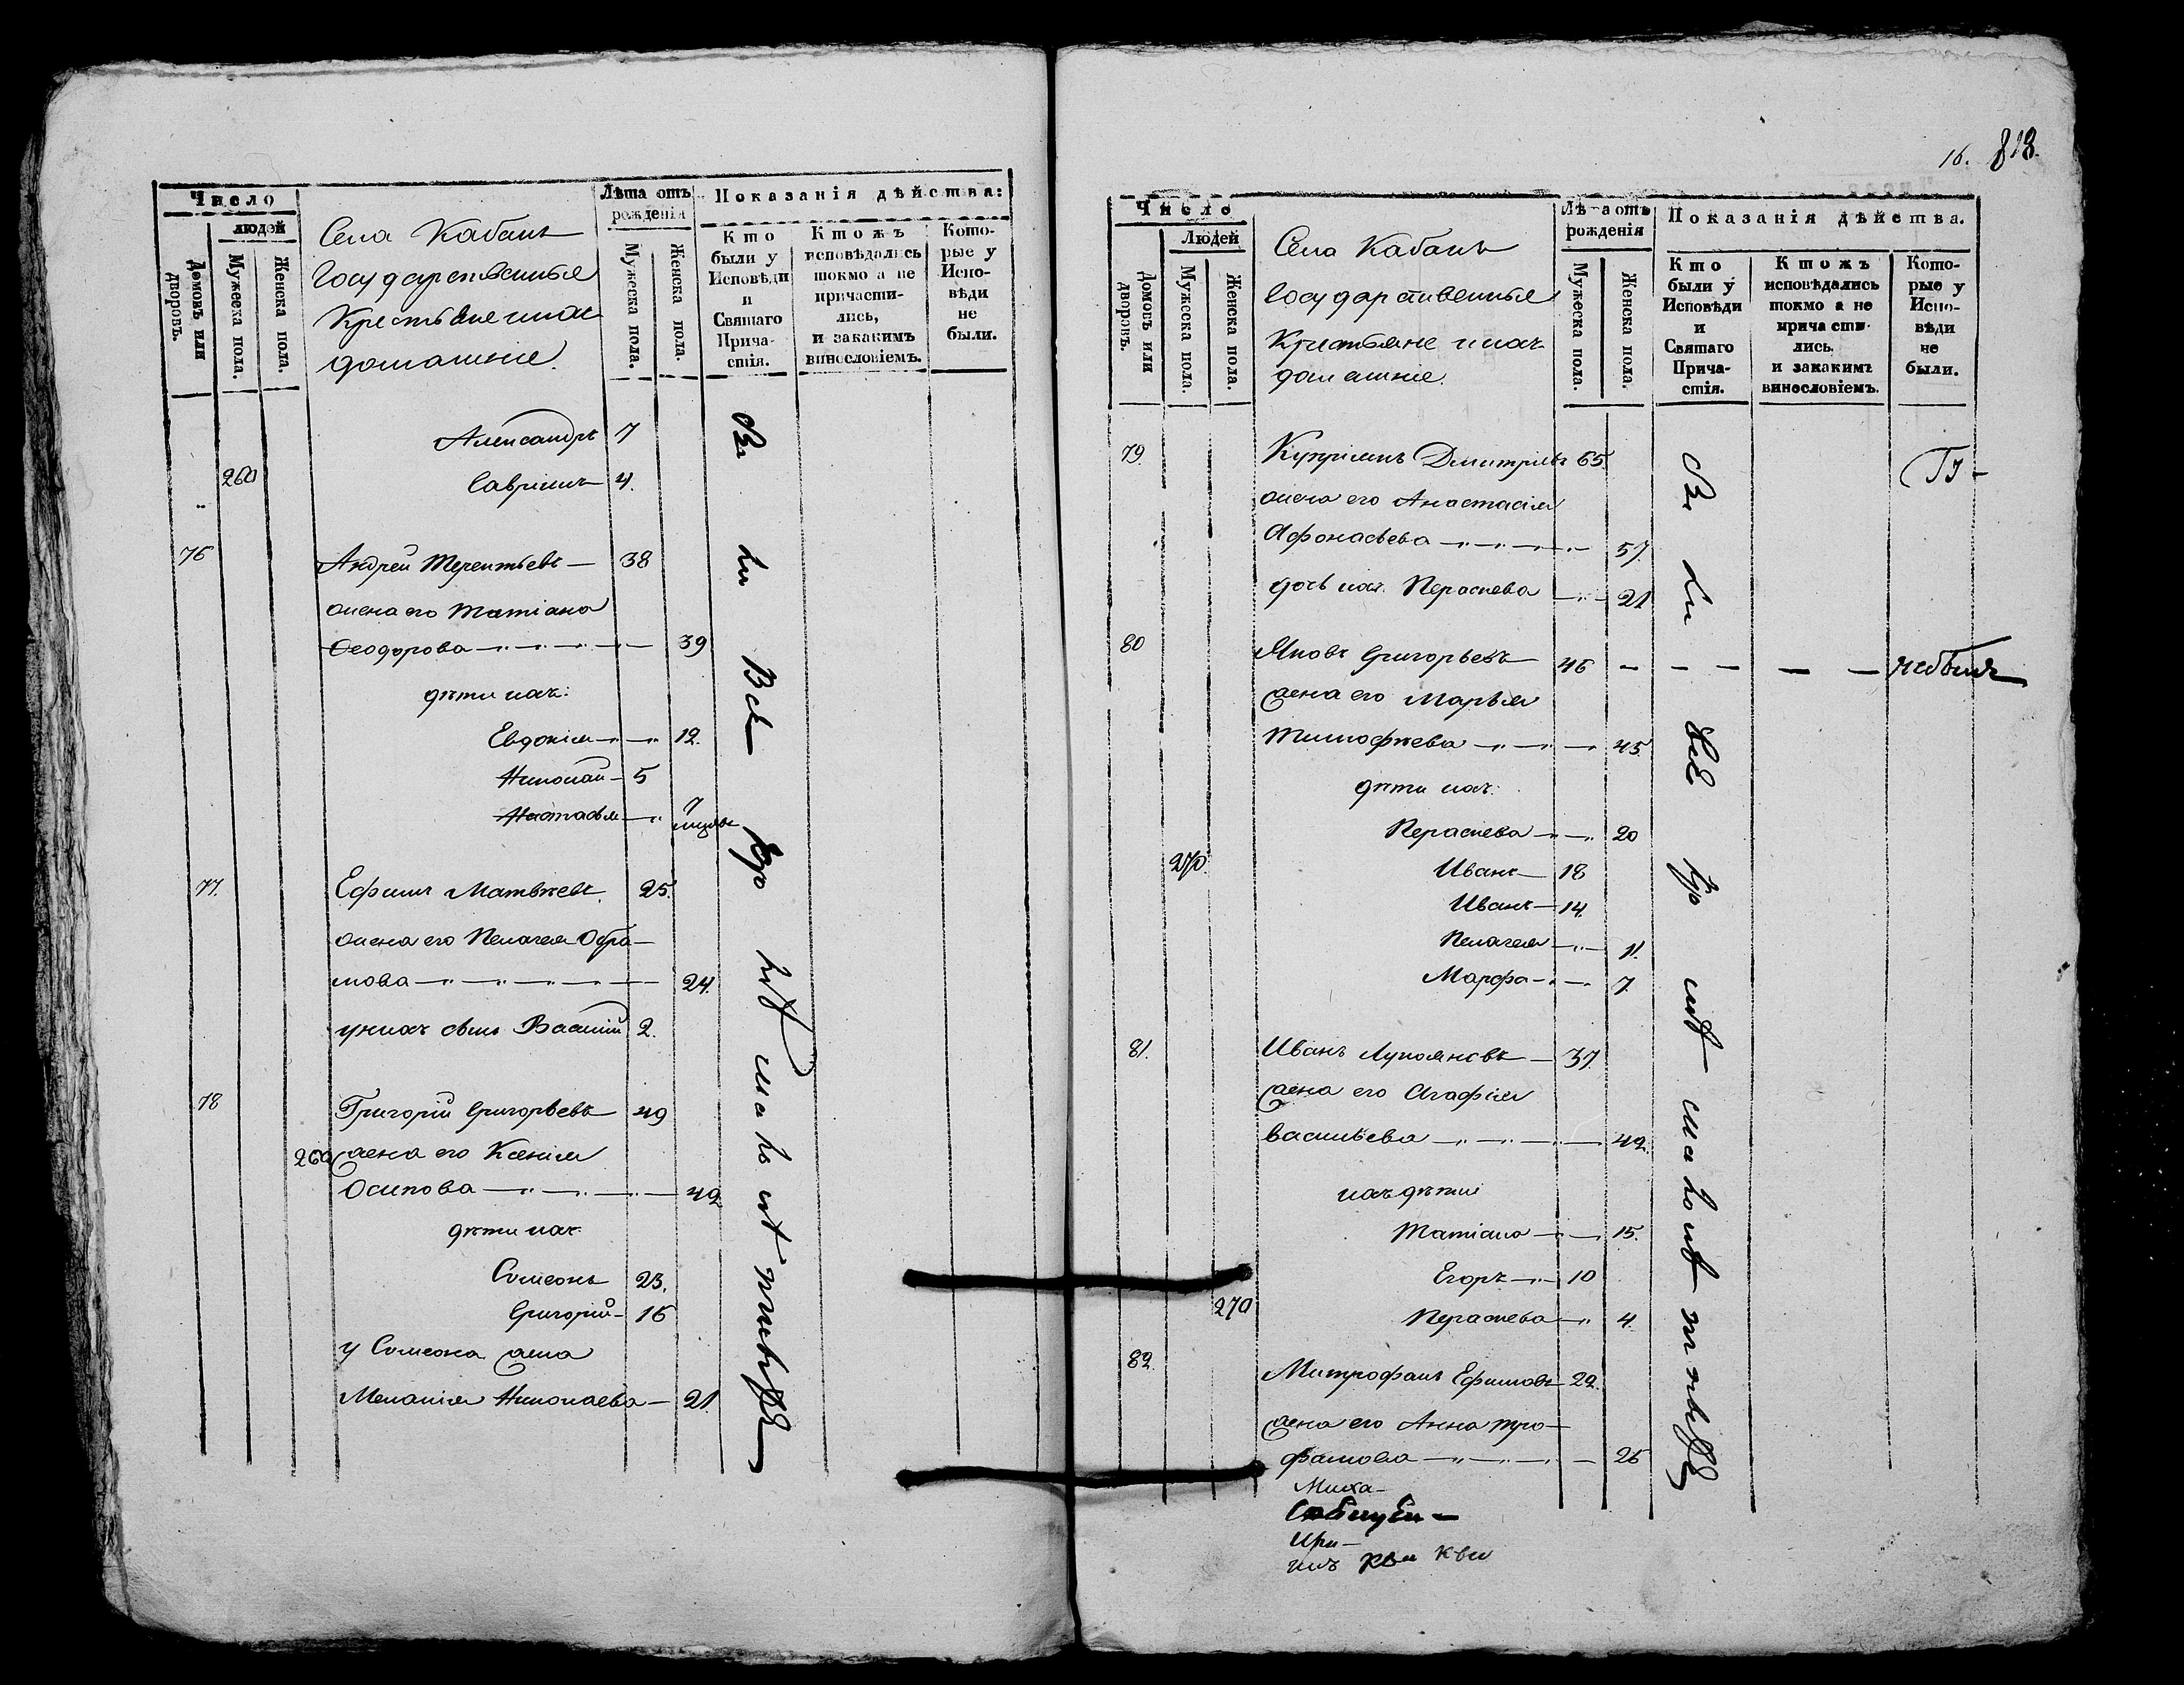 Число
людей
Домовъ или дворовъ.
Мужеска пола.
Женска пола.
Села Кабанъ
Государственные
Крестьяне ихъ
домашніе.
Лѣта отъ рожденія
Мужеска пола.
Женска пола.
Показанія дѣйства:
Кто были у Исповѣди и Святаго Причастія.
Ктожъ исповѣдались токмо а не причастились, и закакимъ винословіемъ.
Которые у Исповѣди не были.
Александръ 7
260
4.
76 Андрей Терентьевъ — 38
жена его Татіана
Феодорова — 39
дѣти ихъ:
Евдокія — 12.
Николай — 5
Настасья — 7
77. Ефимъ Матвѣевъ. 25.
жена его Пелагея Обра-
мова — 24.
у нихъ сынъ Василій 2.
78 Григорій Григорьевъ 49
260 жена его Ксенія
Осипова — 49
дѣти ихъ
Симеонъ 23.
Григорій — 16
у Симеона жена
Меланія Николаева — 21.
16. 818.
Число
Людей
Домовъ или дворовъ.
Мужеска пола.
Женска пола.
Села Кабанъ
Государственные
Крестьяне ихъ
домашніе.
Лѣта отъ рожденія
Мужеска пола.
Женска пола.
Показанія дѣйства.
Кто были у Исповѣди и Святаго Причастія.
Ктожъ исповѣдались токмо а не причастились. и закакимъ винословіемъ.
Которые у Исповѣди не были.
79. Купріянъ Дмитріевъ 65.
жена его Анастасія
Афонасьева — 57.
дочь ихъ Перасковья — 21
80 Яковъ Григорьевъ — 46 — — — — — небылъ
жена его Марья
Тимофѣева — 45
дѣти ихъ:
— 20
270. Иванъ — 18
Иванъ — 14.
Пелагея — 11.
Марфа — 7.
81. Иванъ Лукояновъ — 37.
жена его Агафія
Васильева — 42.
ихъ дѣти
Татіана — 15.
Егоръ — 10
270 — 4.
82. Митрофанъ Ефимовъ 22.
жена его Анна Тро-
фимова — 26